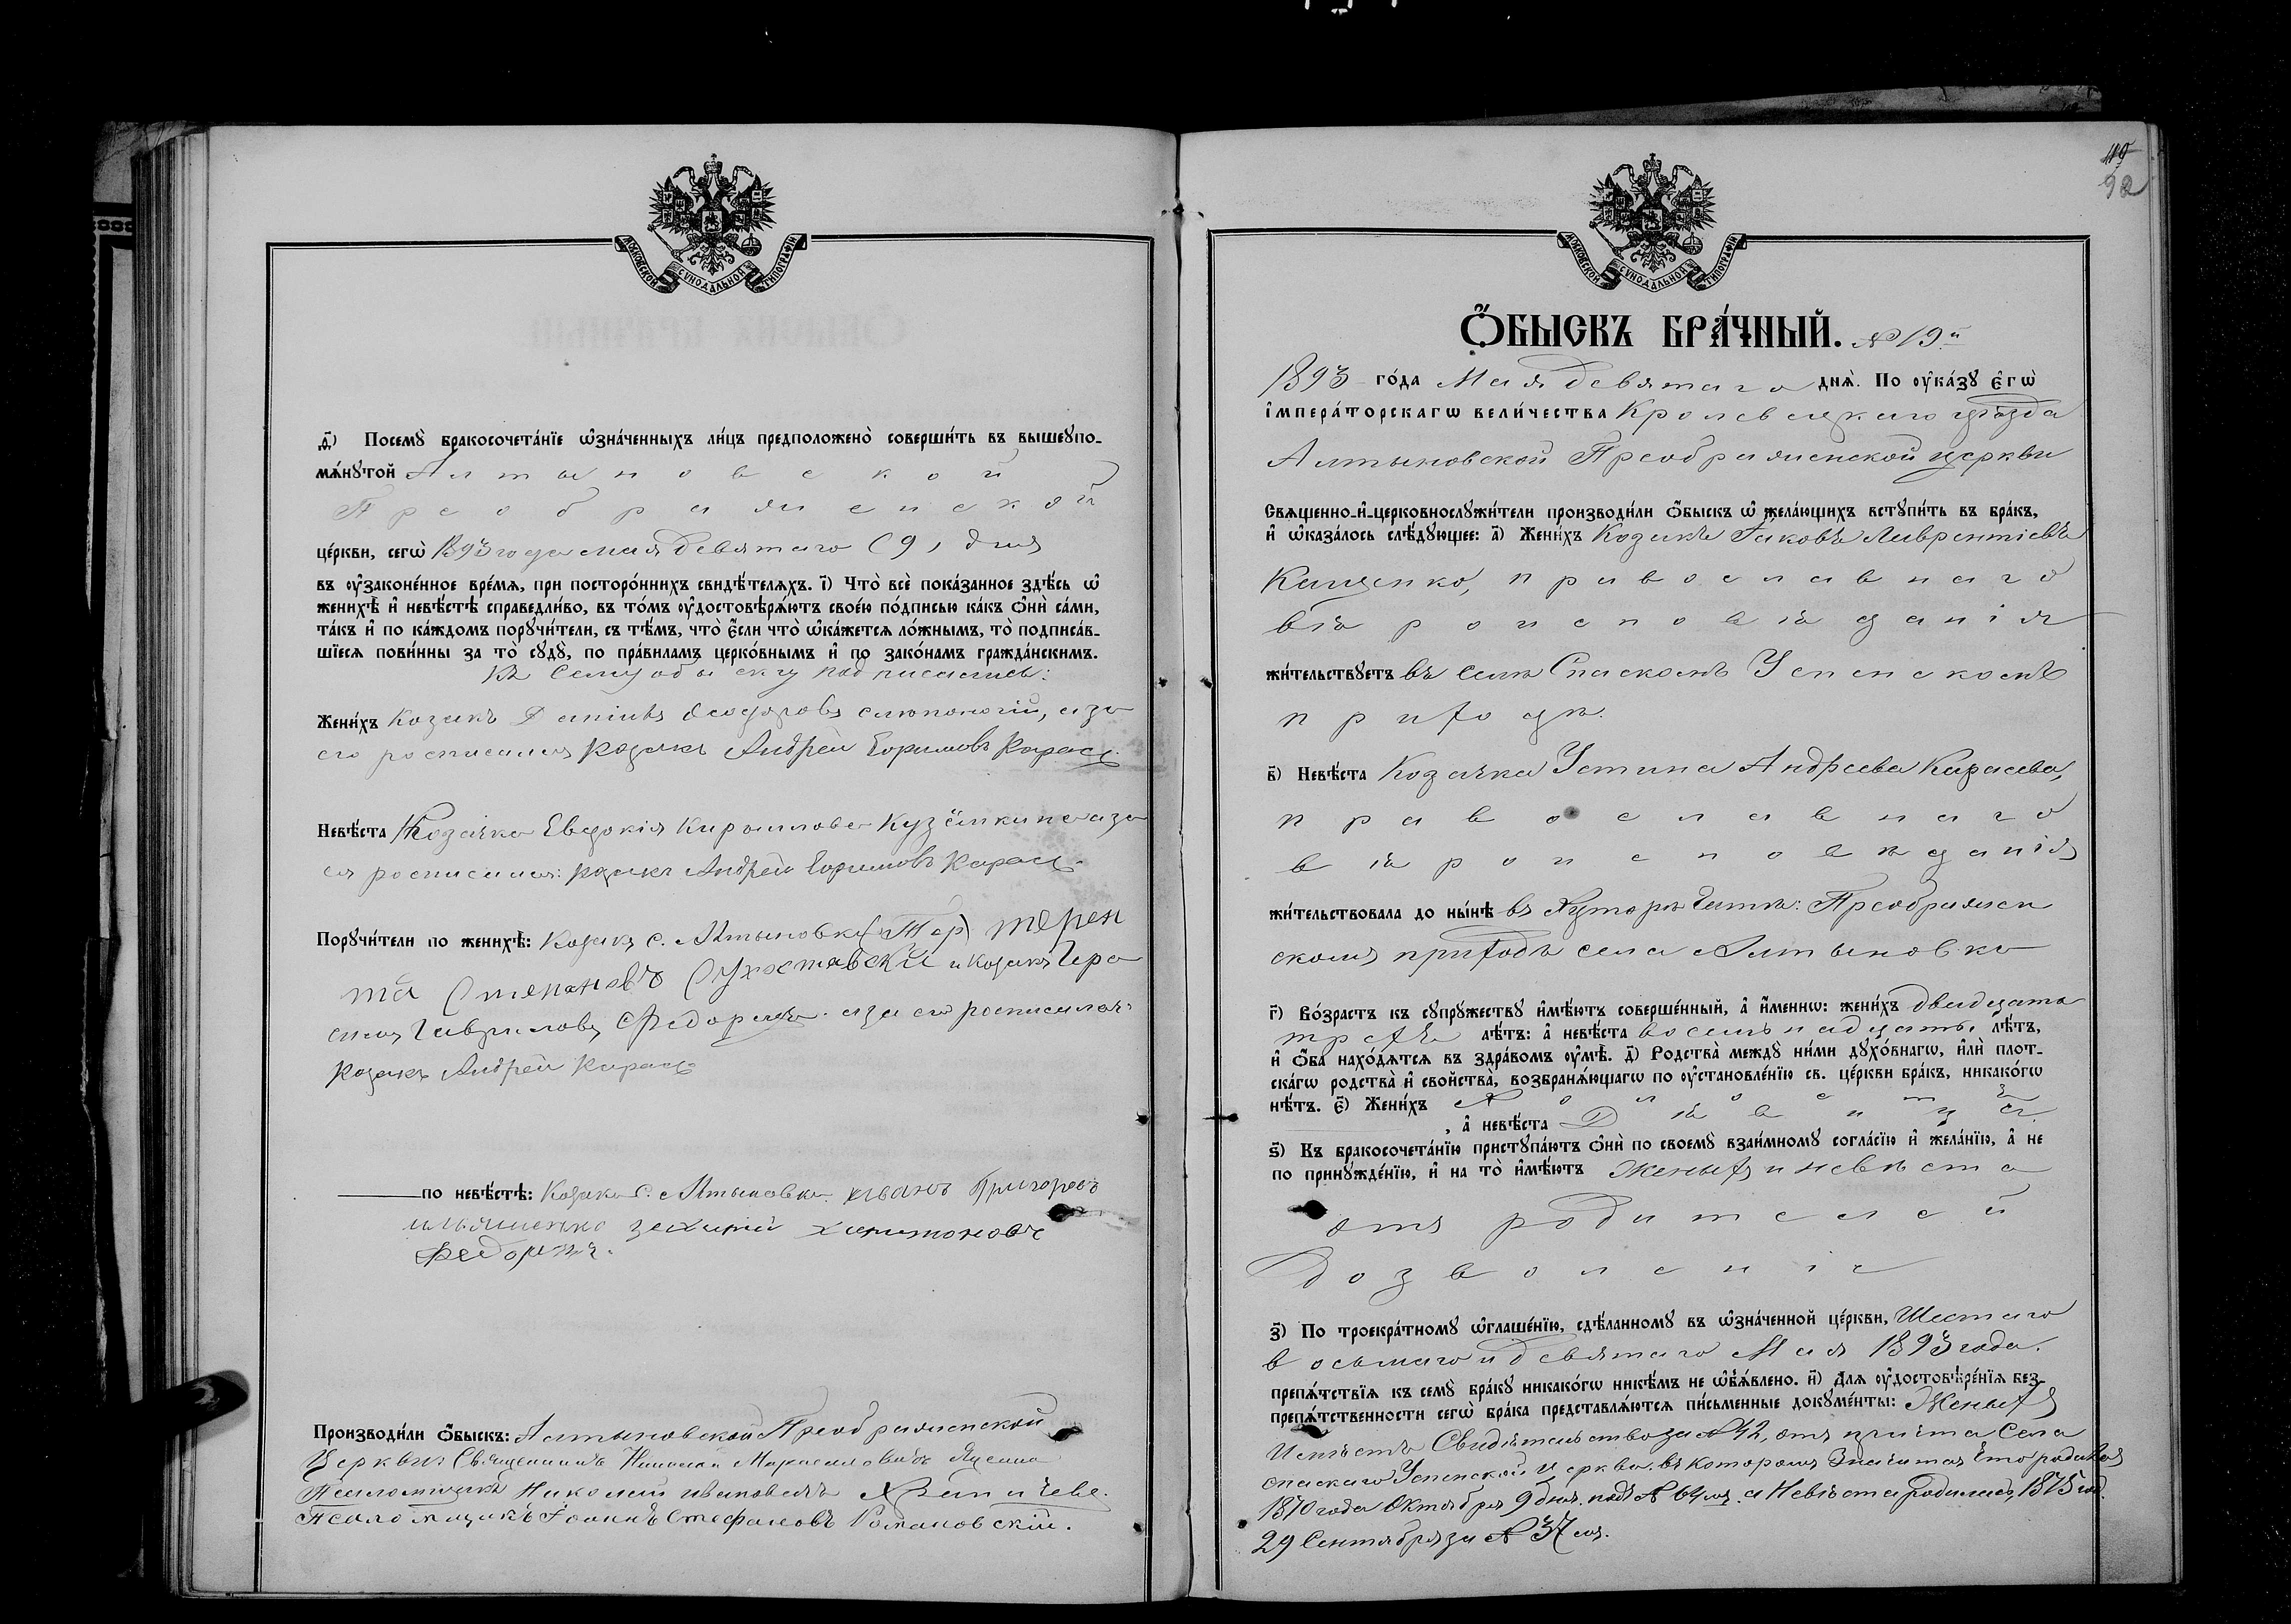 МОСКОВСКОЙ СѴНОДАЛЬНОЙ ТИПОГРАФІИ
Посемꙋ̀ бракосочета́нїе ѡ҆зна́ченныхъ ли́цъ предположено̀ соверши́ть въ вышеꙋпо-
мѧ́нꙋтой Алтыновской
Преображенской
це́ркви, сегѡ̀ 1893 года мая девятаго (9) дня
въ ᲂу҆законе́нное вре́мѧ, при посторо́ннихъ свидѣ́телѧхъ. і҃) Что̀ всѐ пока́занное здѣ́сь ѡ҆
женихѣ̀ и҆ невѣ́стѣ справедли́во, въ то́мъ ᲂу҆достовѣрѧ́ютъ свое́ю по́дписью ка́къ ѻ҆нѝ са́ми,
та́къ и҆ по ка́ждомъ порꙋчи́тели, съ тѣ́мъ, что̀ є҆́сли что̀ ѡ҆ка́жетсѧ ло́жнымъ, то̀ подписа́в-
шїесѧ пови́нны за то̀ сꙋдꙋ̀, по пра́виламъ церко́внымъ и҆ по зако́намъ гражда́нскимъ.
Къ сему обыску подписались:
Жени́хъ Козакъ Данiилъ Феодоровъ, а за
его росписался козакъ Андрей Ефимовъ Карась
Невѣ́ста Козачка Евдокія Кириллова а за
ея росписался: козакъ Андрей Ефимовъ Карась
Порꙋчи́тели по женихѣ̀: Козакъ с. Алтыновки (Тер) терен
тій Степановъ и козакъ Гера
симъ Гавриловъ Федоряка. а за его росписался
козакъ Андрей Карась
по невѣ́стѣ: Козаки с. Алтыновки. иванъ Григоровъ
ильяшенко харитоновъ
Федоряка.
Производи́ли ѻ҆́быскъ: Алтыновской Преображенской
Церкви Священникъ Николай
Псаломщикъ Николай Ивановичъ
Псаломщикъ Іоаннъ Стефановъ Романовскій.
92
МОСКОВСКОЙ СѴНОДАЛЬНОЙ ТИПОГРАФІИ
Ѻ҆́БЫСКЪ БРА́ЧНЫЙ. № 19й
1893 го́да Мая девятаго днѧ̀. По ᲂу҆ка́зꙋ є҆гѡ̀
і҆мпера́торскагѡ вели́чества Кролевецкаго уѣзда
Алтыновской Преображенской церкви
Свѧщенно-и҆-церковнослꙋжи́тели производи́ли ѻ҆́быскъ ѡ҆ жела́ющихъ встꙋпи́ть въ бра́къ,
и҆ ѡ҆каза́лось слѣ́дꙋющее: а҃) Жени́хъ Козакъ Іаковъ Лаврентіевъ
Кищенко, православнаго
вѣроисповѣданія
жи́тельствꙋетъ въ селѣ Спаскомъ Успенскомъ
приходѣ.
в҃) Невѣ́ста Козачка Устина Андреева Карасева,
православнаго
вѣроисповѣданія
жи́тельствовала до ны́нѣ въ Хуторѣ Преображен
скомъ приходѣ села Алтыновки
г҃) Во́зрастъ къ сꙋпрꙋ́жествꙋ и҆мѣ́ютъ соверше́нный, а҆ и҆́менно: жени́хъ двадцать
трехъ лѣ́тъ: а҆ невѣ́ста восемьнадцать лѣ́тъ,
и҆ ѻ҆́ба нахо́дѧтсѧ въ здра́вомъ ᲂу҆мѣ̀. д҃) Родства̀ междꙋ̀ ни́ми дꙋхо́внагѡ, и҆лѝ плот-
ска́гѡ родства̀ и҆ свойства̀, возбранѧ́ющагѡ по ᲂу҆становле́нїю св. це́ркви бра́къ, никако́гѡ
нѣ́тъ. є҃) Жени́хъ Холостъ
, а҆ невѣ́ста Дѣвица.
ѕ҃) Къ бракосочета́нїю пристꙋпа́ютъ ѻ҆нѝ по своемꙋ̀ взаи́мномꙋ согла́сїю и҆ жела́нїю, а҆ не
по принꙋжде́нїю, и҆ на то̀ и҆мѣ́ютъ Женихъ и невѣста
отъ родителей
дозволеніе
з҃) По троекра́тномꙋ ѡ҆глаше́нїю, сдѣ́ланномꙋ въ ѡ҆зна́ченной це́ркви, Шестаго
восьмаго и девятаго Мая 1893 года.
препѧ́тствїѧ къ семꙋ̀ бра́кꙋ никако́гѡ никѣ́мъ не ѡ҆б̾ѧ́влено. и҃) Для ᲂу҆достовѣре́нїѧ без-
препѧ́тственности сегѡ̀ бра́ка представлѧ́ютсѧ пи́сьменные докꙋме́нты: Женихъ
имѣетъ Свидѣтельство за № 42, отъ причта Села
Спаскаго Успенской церкви. въ которомъ Значится Его родився
1870 года Октября 9 дня. подъ № 64мъ. а Невѣста родилась, 1875 год.
29 Сентября за № 37мъ.